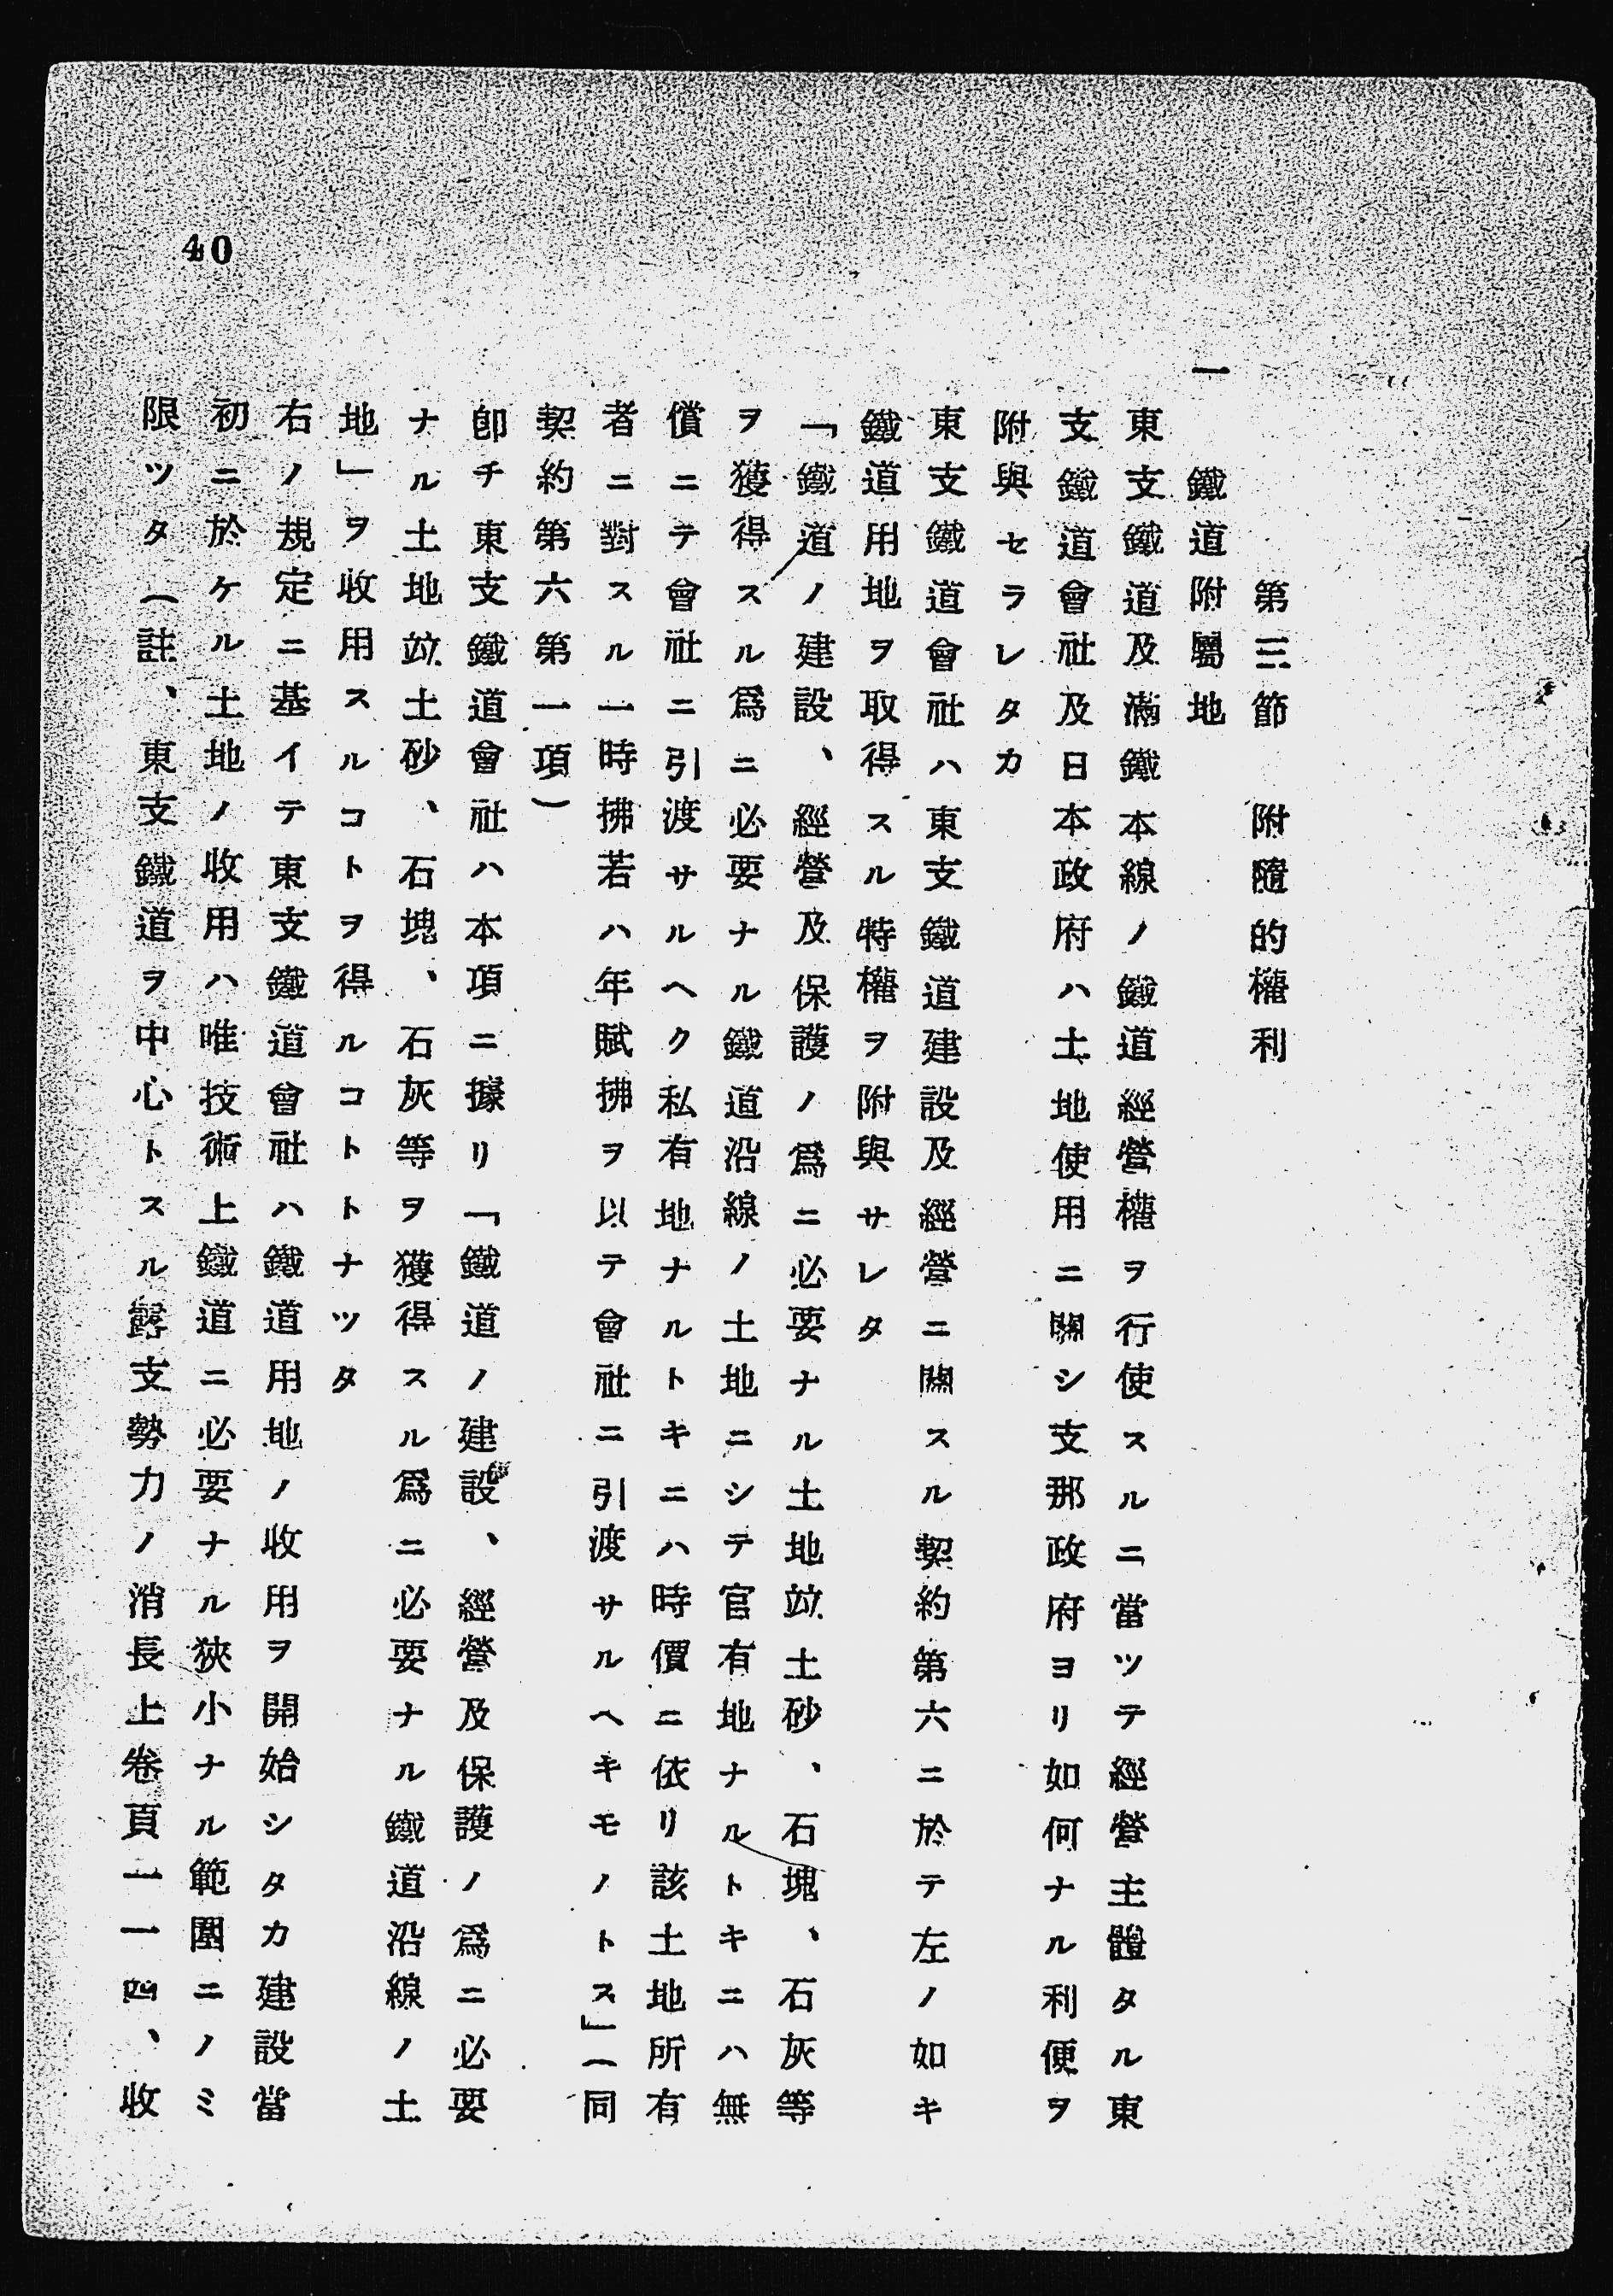 40
第三節　附隨的權利
一　鐵道附屬地
東支鐵道及滿鐵本線ノ鐵道經營權ヲ行使スルニ當ツテ經營主體タル東
支鐵道會社及日本政府ハ土地使用ニ關シ支那政府ヨリ如何ナル利便ヲ
附與セラレタカ
東支鐵道會社ハ東支鐵道建設及經營ニ關スル契約第六ニ於テ左ノ如キ
鐵道用地ヲ取得スル特權ヲ附與サレタ
「鐵道ノ建設、經營及保護ノ爲ニ必要ナル土地竝土砂、石塊、石灰等
ヲ獲得スル爲ニ必要ナル鐵道沿線ノ土地ニシテ官有地ナルトキニハ無
償ニテ會社ニ引渡サルヘク私有地ナルトキニハ時價ニ依リ該土地所有
者ニ對スル一時拂若ハ年賦拂ヲ以テ會社ニ引渡サルヘキモノトス」（同
契約第六第一項）
卽チ東支鐵道會社ハ本項ニ據リ「鐵道ノ建設、經營及保護ノ爲ニ必要
ナル土地竝土砂、石塊、石灰等ヲ獲得スル爲ニ必要ナル鐵道沿線ノ土
地」ヲ收用スルコトヲ得ルコトトナツタ
右ノ規定ニ基イテ東支鐵道會社ハ鐵道用地ノ收用ヲ開始シタカ建設當
初ニ於ケル土地ノ收用ハ唯技術上鐵道ニ必要ナル狹小ナル範圍ニノミ
限ツタ（註、東支鐵道ヲ中心トスル露支勢力ノ消長上卷頁一一四、收